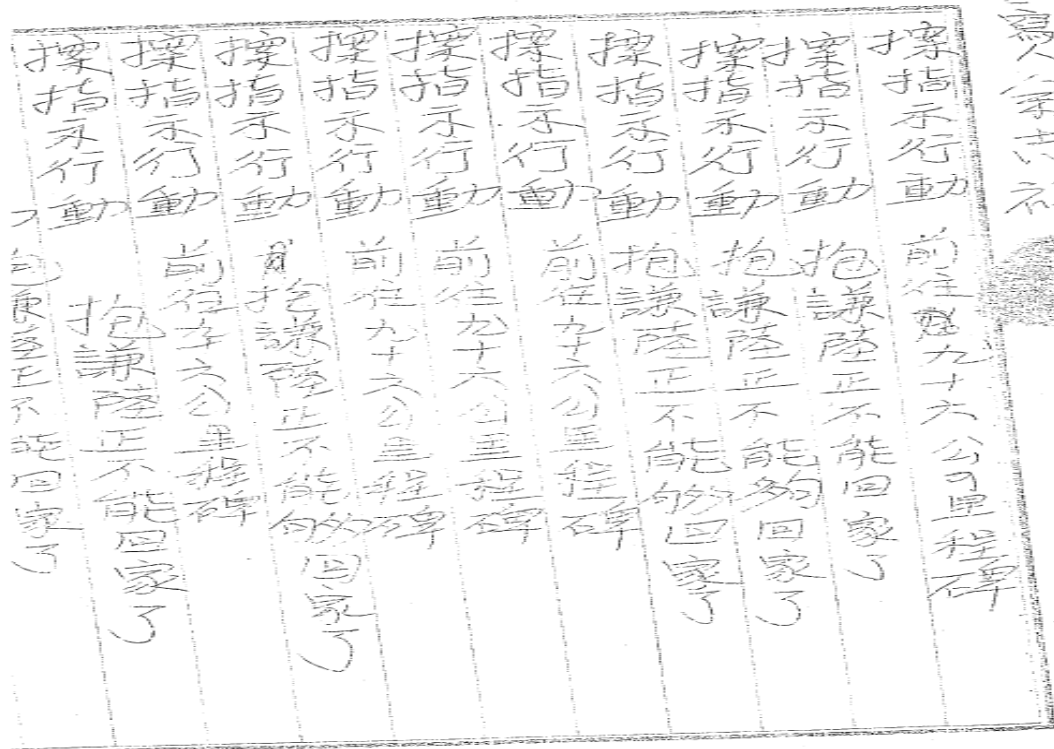 寫人
按指示行動 前往九十六公司里程碑
按指示行動 抱謙陸正不能回家了
按指示行動 抱謙陸正不能夠回家了
按指示行動 抱謙陸正不能夠回家了
按指示行動 前往九十六公里程碑
按指示行動 前往九十六公里程碑
按指示行動 前往九十六公里程碑
按指示行動 抱謙陸正不能夠回家了
按指示行動 前往九十六公里程碑
按指示行動 抱謙陸正不能回家了
陸正不能回家了